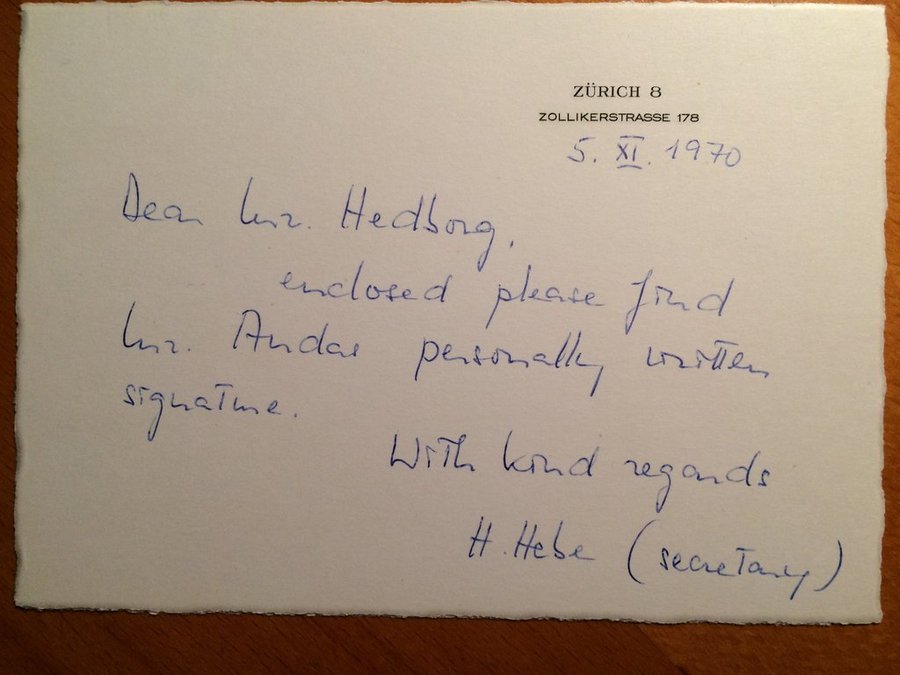 ZÜRICH 8
ZOLLIKERSTRASSE 178
5. XI. 1970
Dear Mr. Hedborg,
enclosed please find
Mr. Andas personally written
signature.
With kind regards
H. Hebe (secretary)